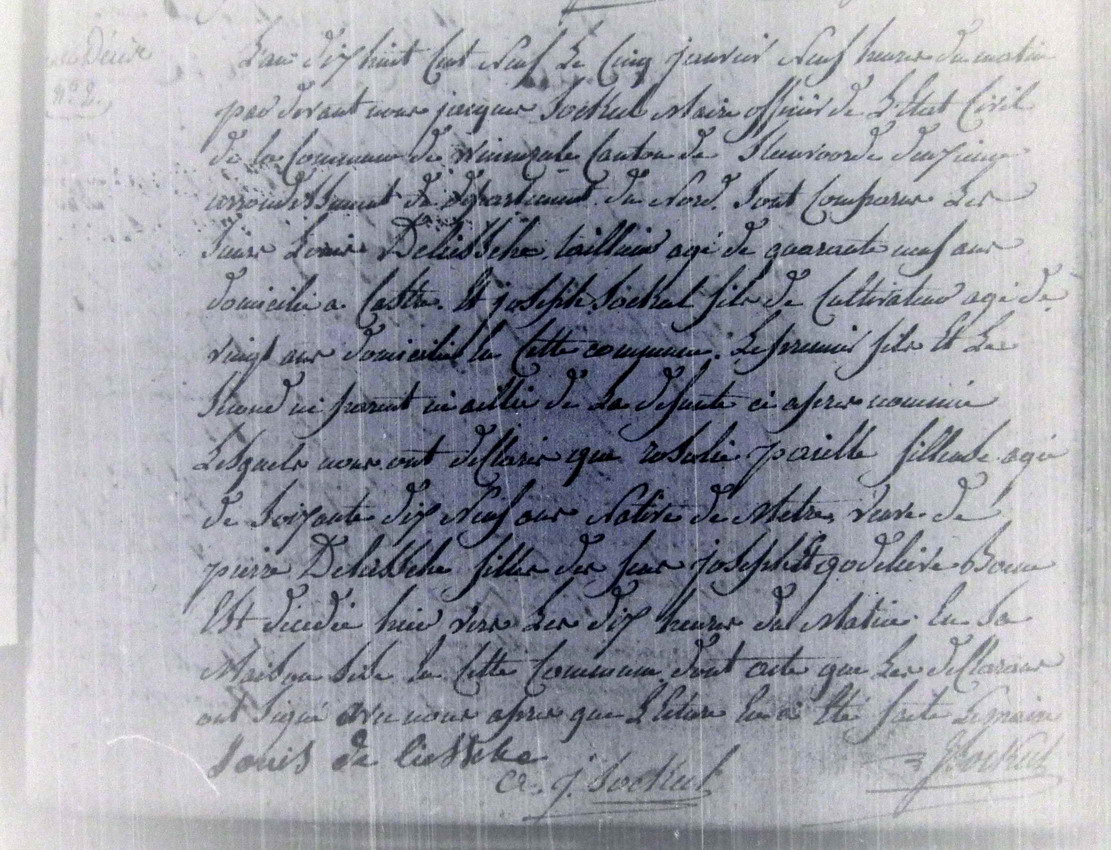 Décès
n° 2.
L'an dix huit Cent Neuf Le Cinq janvier Neuf heures du matin
par devant nous jacques Sockeel Maire officier de L'Etat Civil
de la Commune de Winnezeele Canton de Steenvoorde
arrondissement de département du Nord. Sont Comparus Les
Sieurs Louis Deliessche tailleur agé de quarante neuf ans
domicilié a Castre. Et joseph Sockeel fils de Cultivateur agé de
vingt ans domicilié En Cette commune. Le premier fils Et Le
Second ni parent ni aillié de La défunte ci après nommée
Lesquels nous ont déClarés que rosalie fileuse agée
de Soixante dix Neuf ans Native de veuve de
pierre Deliessche fille des feus joseph Et godelieve
Est décédée hier vers Les dix heures du Matin En Sa
Maison Sise En Cette Commune dont acte que Les déClarans
ont Signé avec nous après que LEcture En a Eté faite Le maire
Louis de liessche
j. Sockeel
J Sockeel